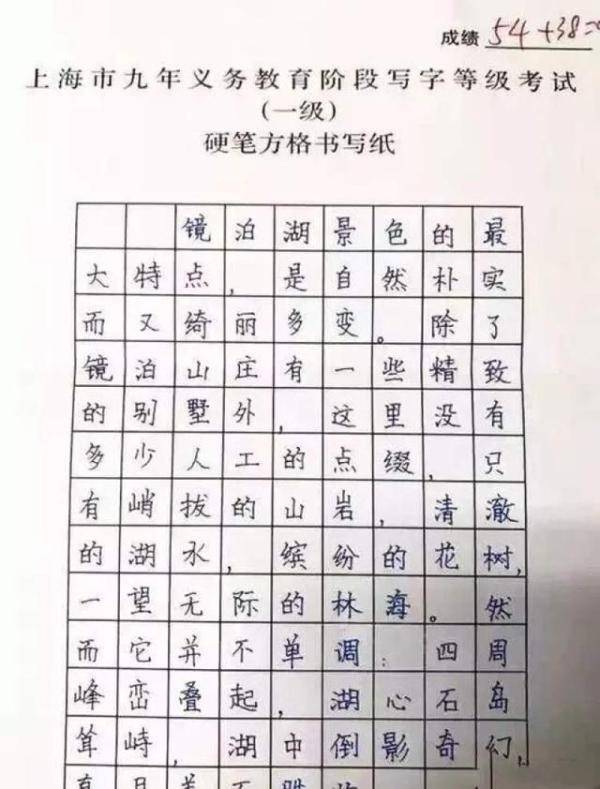 成绩 54+38=
上海市九年义务教育阶段写字等级考试
(一级)
硬笔方格书写纸
镜泊湖景色的最
大特点,是自然朴实
而又绮丽多变。除了
镜泊山庄有一些精致
的别墅外,这里没有
多少人工的点缀,只
有峭拔的山岩,清澈
的湖水,缤纷的花树,
一望无际的林海。然
而它并不单调:四周
峰峦叠起,湖心石岛
耸峙,湖中倒影奇幻,